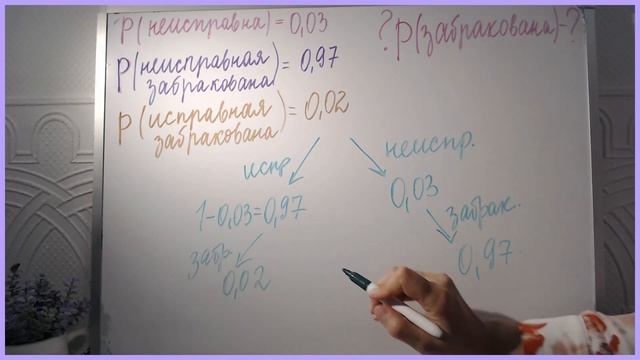 P(неисправна) = 0,03
?P(забракована)-?
P(неисправная забракована) = 0,97
P(исправная забракована) = 0,02
испр.
неиспр.
1-0,03=0,97
0,03
забр.
забрак.
0,02
0,97.